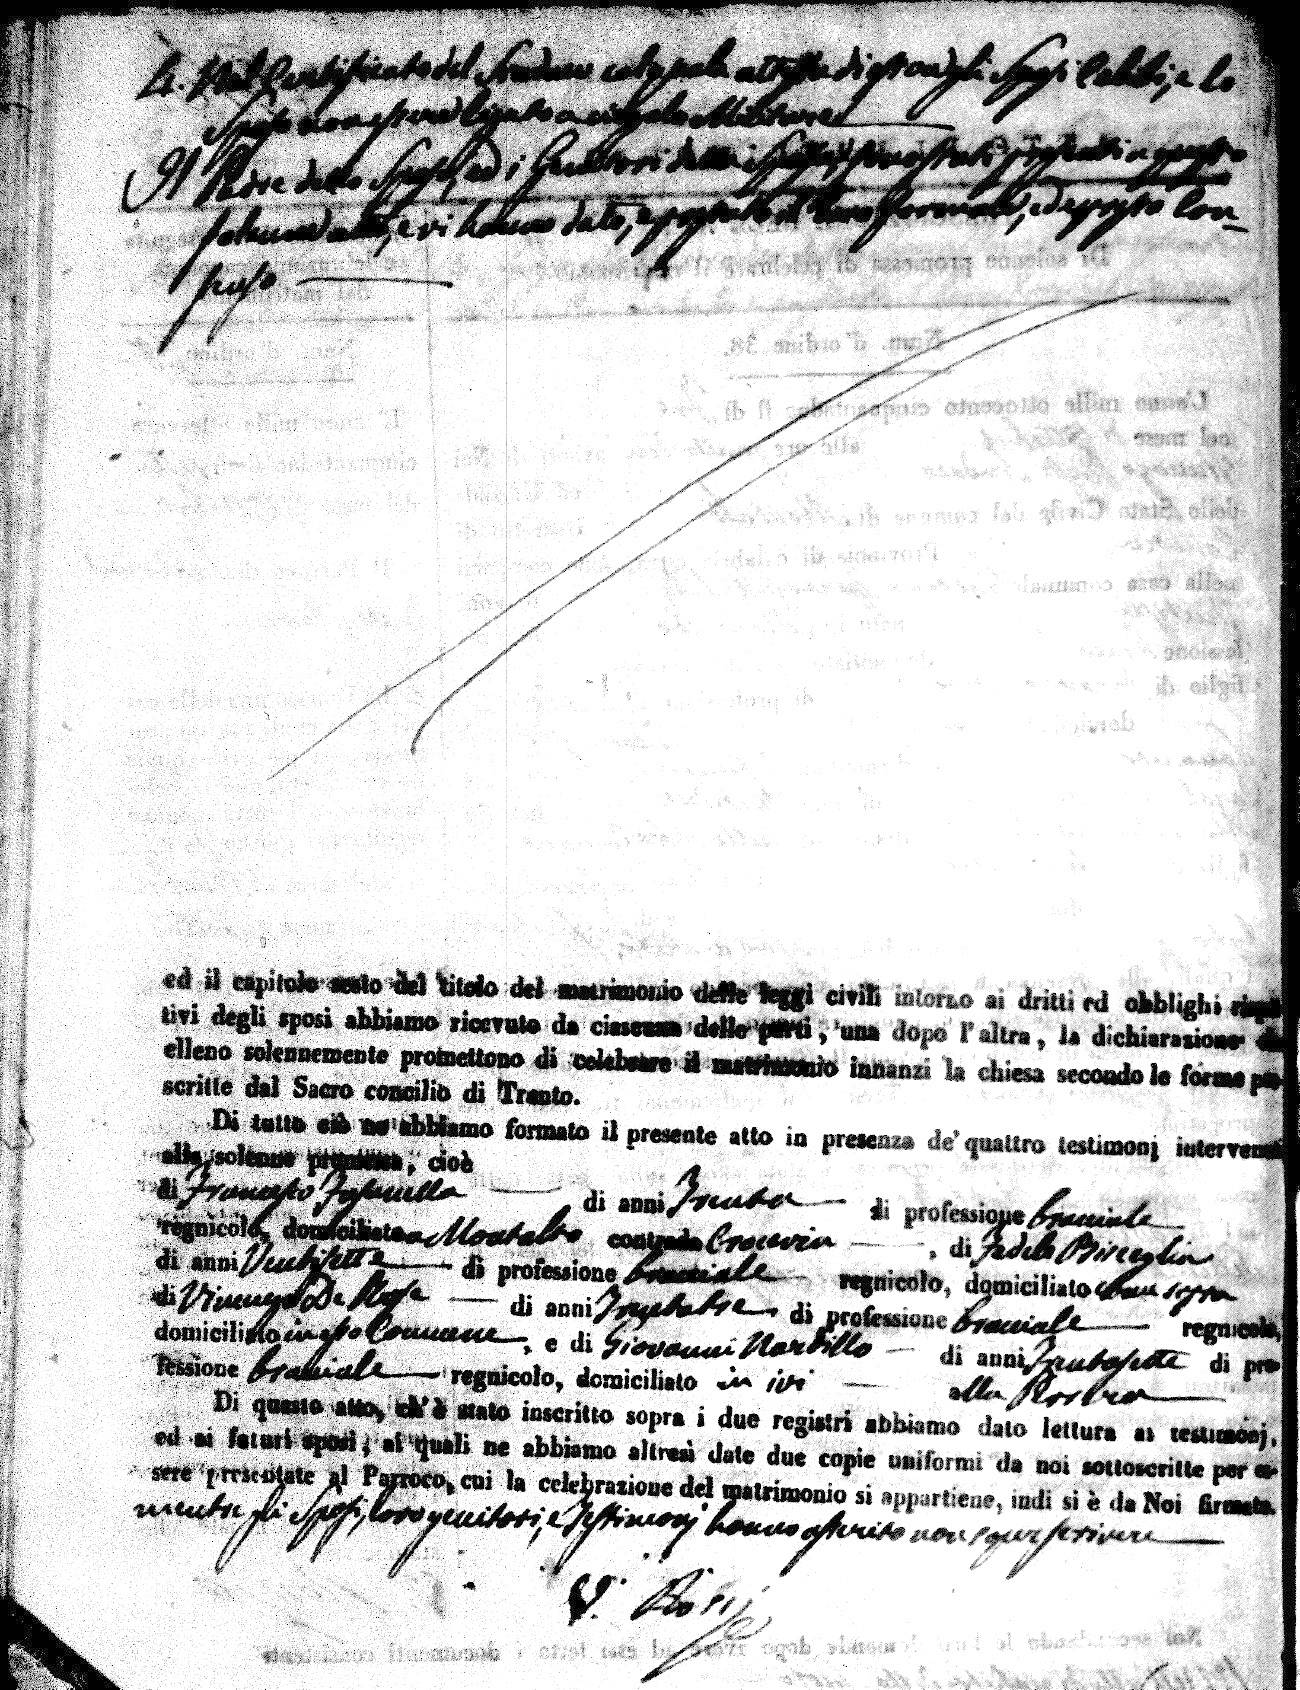 4. Nel Certificato del Sindaco col quale attesta di essere gli Sposi Celibi, e lo
Sposo non essere legato a cingolo Militare
Il Padre dello Sposo, ed i Genitori della Sposa, sono stati presenti a questo
solenne atto, e vi hanno dato, e prestato il loro formale, ed espresso Con-
senso
ed il capitolo sesto del titolo del matrimonio delle leggi civili intorno ai dritti ed obblighi rispet
tivi degli sposi abbiamo ricevuto da ciascuna delle parti, una dopo l'altra, la dichiarazione che
elleno solennemente promettono di celebrare il matrimonio innanzi la chiesa secondo le forme pre-
scritte dal Sacro concilio di Trento.
Di tutto ciò ne abbiamo formato il presente atto in presenza de' quattro testimonj intervenuti
alla solenne promessa, cioè
di Francesco di anni Trenta di professione bracciale
regnicolo, domiciliato a Montalto contrada , di Fedele Bisceglia
di anni Ventisette di professione bracciale regnicolo, domiciliato come sopra
di Vincenzo De Rose di anni Trentatre di professione bracciale regnicolo,
domiciliato in esso Comune, e di Giovanni Nardillo di anni Trentasette di pro-
fessione bracciale regnicolo, domiciliato in ivi alla
Di questo atto, ch'è stato inscritto sopra i due registri abbiamo dato lettura ai testimonj,
ed ai futuri sposi, ai quali ne abbiamo altresì date due copie uniformi da noi sottoscritte per es-
sere presentate al Parroco, cui la celebrazione del matrimonio si appartiene, indi si è da Noi firmato.
mentre gli Sposi, loro genitori, e Testimonj hanno asserito non saper scrivere
V. Rossi